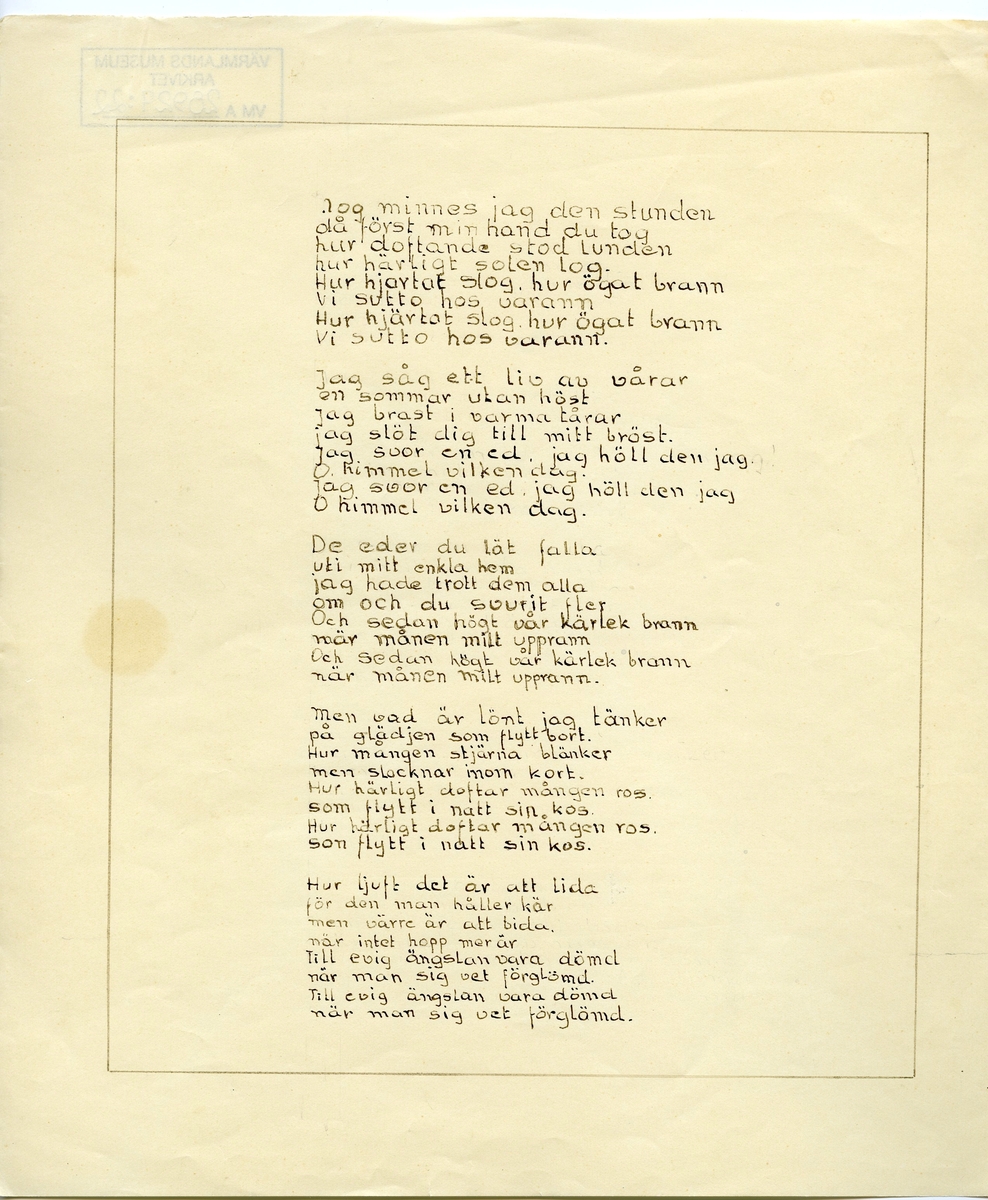 VÄRMLANDS MUSEUM
ARKIVET
VM A
Nog minnes jag den stunden
då först min hand du tog
hur doftande stod lunden
hur härligt solen log.
Hur hjärtat slog, hur ögat brann
Vi sutto hos varann
Hur hjärtat slog, hur ögat brann
Vi sutto hos varann.
Jag såg ett liv av vårar
en sommar utan höst
jag brast i varma tårar
jag slöt dig till mitt bröst.
Jag svor en ed, jag höll den jag.
O, himmel vilken dag.
Jag svor en ed, jag höll den jag
O himmel vilken dag.
De eder du lät falla
uti mitt enkla hem
jag hade trott dem alla
om och du svurit fler
Och sedan högt vår kärlek brann
när månen milt upprann
Och sedan högt vår kärlek brann
när månen milt upprann.
Men vad är lönt jag tänker
på glädjen som flytt bort.
Hur mången stjärna blänker
men slocknar inom kort.
Hur härligt doftar mången ros.
som flytt i natt sin kos.
Hur härligt doftar mången ros.
son flytt i natt sin kos.
Hur ljuft det är att lida
för den man håller kär
men värre är att bida,
när intet hopp mer är
Till evig ängslan vara dömd
när man sig vet förglömd.
Till evig ängslan vara dömd
när man sig vet förglömd.